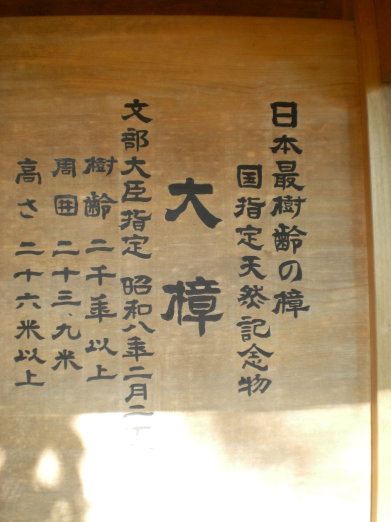 日本最樹齢の樟
国指定天然記念物
大樟
文部大臣指定 昭和八年二月二
樹齢 二千年以上
周囲 二十三、九米
高さ 二十六米以上